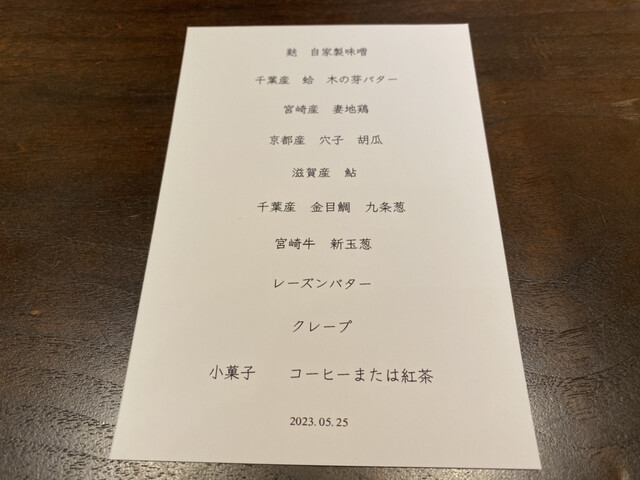 麩　自家製味噌
千葉産　蛤　木の芽バター
宮崎産　妻地鶏
京都産　穴子　胡瓜
滋賀産　鮎
千葉産　金目鯛　九条葱
宮崎牛　新玉葱
レーズンバター
クレープ
小菓子　　コーヒーまたは紅茶
2023.05.25